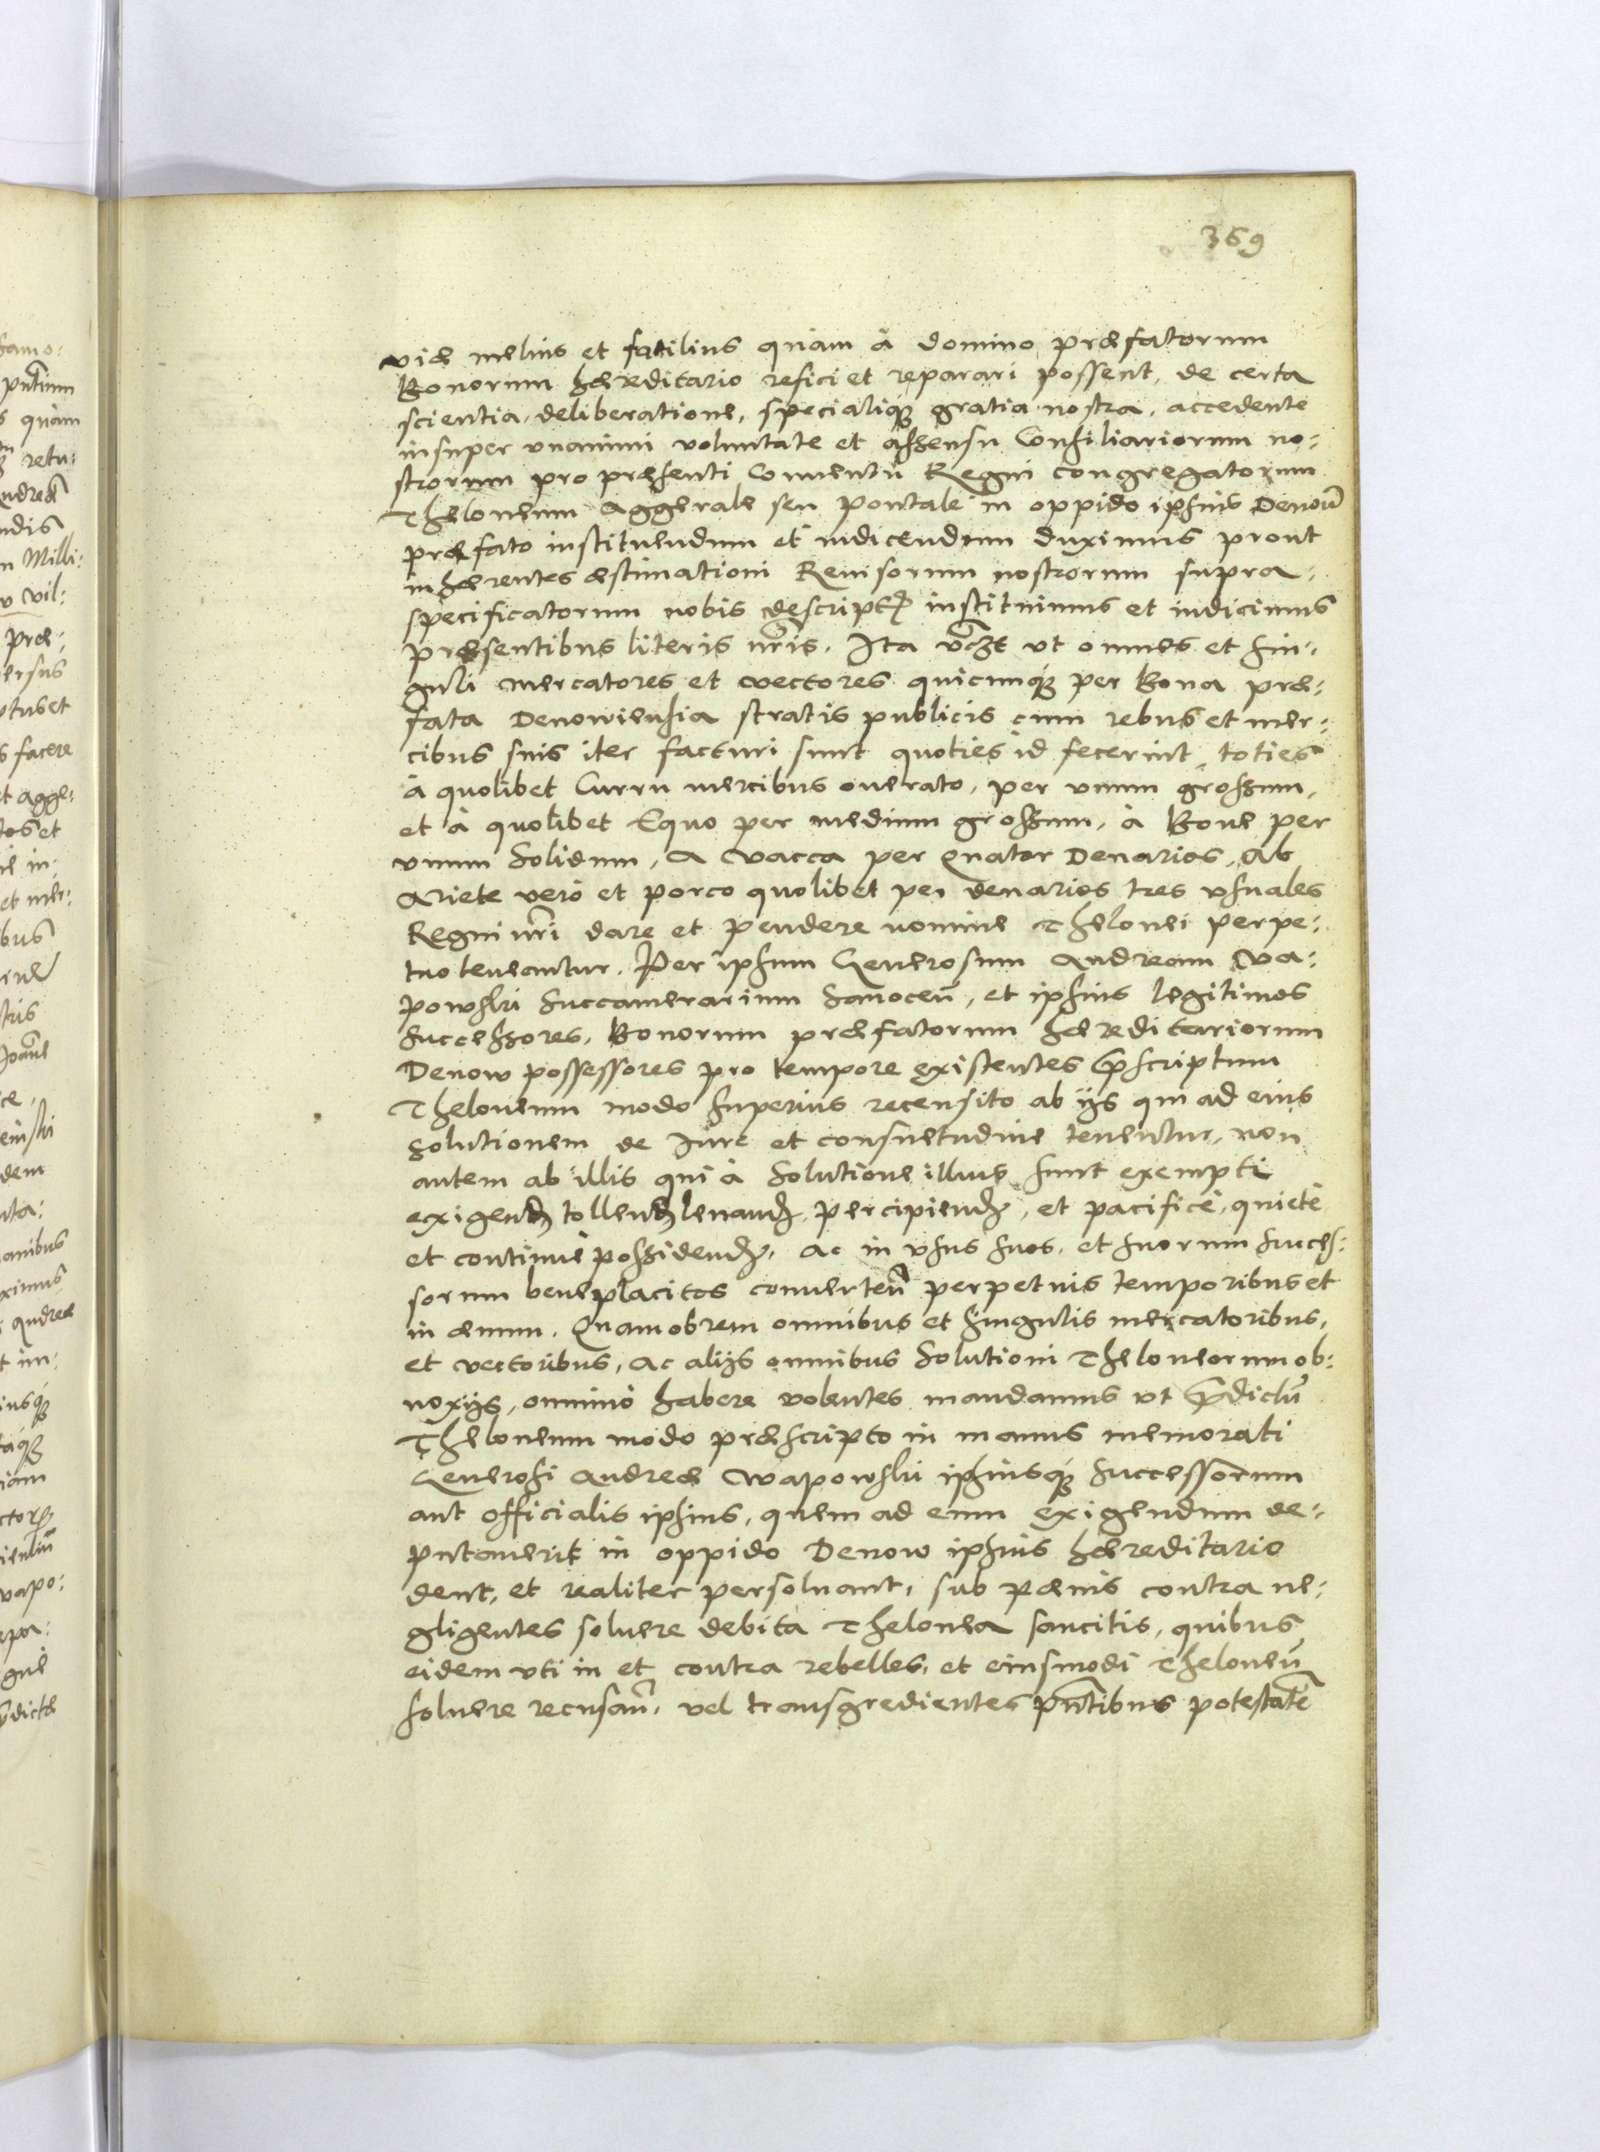 369
viæ melius et facilius quàm à domino præfatorum
Bonorum hæreditario refici et reparari possent, de certa
scientia, deliberatione, specialiq́ue gratia nostra, accedente
insuper vnanimi voluntate et assensu Consiliariorum no-
strorum pro præsenti Conuentu Regni congregatorum
Theloneum Aggerale seu pontale in oppido ipsius Denow̃
præfato instituendum et indicendum duximus prout
inhærentes æstimationi Reuisorum nostrorum supra-
specificatorum nobis descriptę instituimus et indicimus
præsentibus literis nr̃is. Ita vc̃zt vt omnes et sin-
guli mercatores et vectores quicunq́ue per Bona præ-
fata Denowiensia stratis publicis cum rebus et mer-
cibus suis iter facturi sunt quoties id fecerint, toties
à quolibet Curru mercibus onerato, per vnum grossum,
et à quolibet Equo per medium grossum, à Boue per
vnum Solidum, A vacca per Quator Denarios, Ab
Ariete verò et porco quolibet per denarios tres vsuales
Regni nr̃i dare et pendere nomine Thelonei perpe-
tuo teneantur. Per ipsum Generosum Andream Wa-
powski Succamerarium Sanoceñ, et ipsius legitimos
successores, Bonorum præfatorum hæreditariorum
Denow possessores pro tempore existentes p̃scriptum
Theloneum modo superius recensito ab ijs qui ad eius
solutionem de Iure et consuetudine tenentur, non
autem ab illis qui à Solutione illius sunt exempti
exigenđ tollenđ leuanđ, percipienđ, et pacificè, quietè
et continuè possidenđ, ac in vsus suos, et suorum succes-
sorum beneplacitos conuerteñ perpetuis temporibus et
in æuum. Quamobrem omnibus et singulis mercatoribus,
et vectoribus, ac alijs omnibus Solutioni Theloneorum ob-
noxijs, omnino habere volentes mandamus vt p̃dictũ
Theloneum modo præscripto in manus memorati
Generosi Andreæ Wapowski ipsiusq́ue successorum
aut officialis ipsius, quem ad eum exigendum de-
putauerit in oppido Denow ipsius hæreditario
dent, et realiter persoluant, sub pænis contra ne-
gligentes soluere debita Thelonea sancitis, quibus
eidem vti in et contra rebelles, et eiusmodi Theloneũ
soluere recusañ, vel transgredientes pñtibus potestatẽ